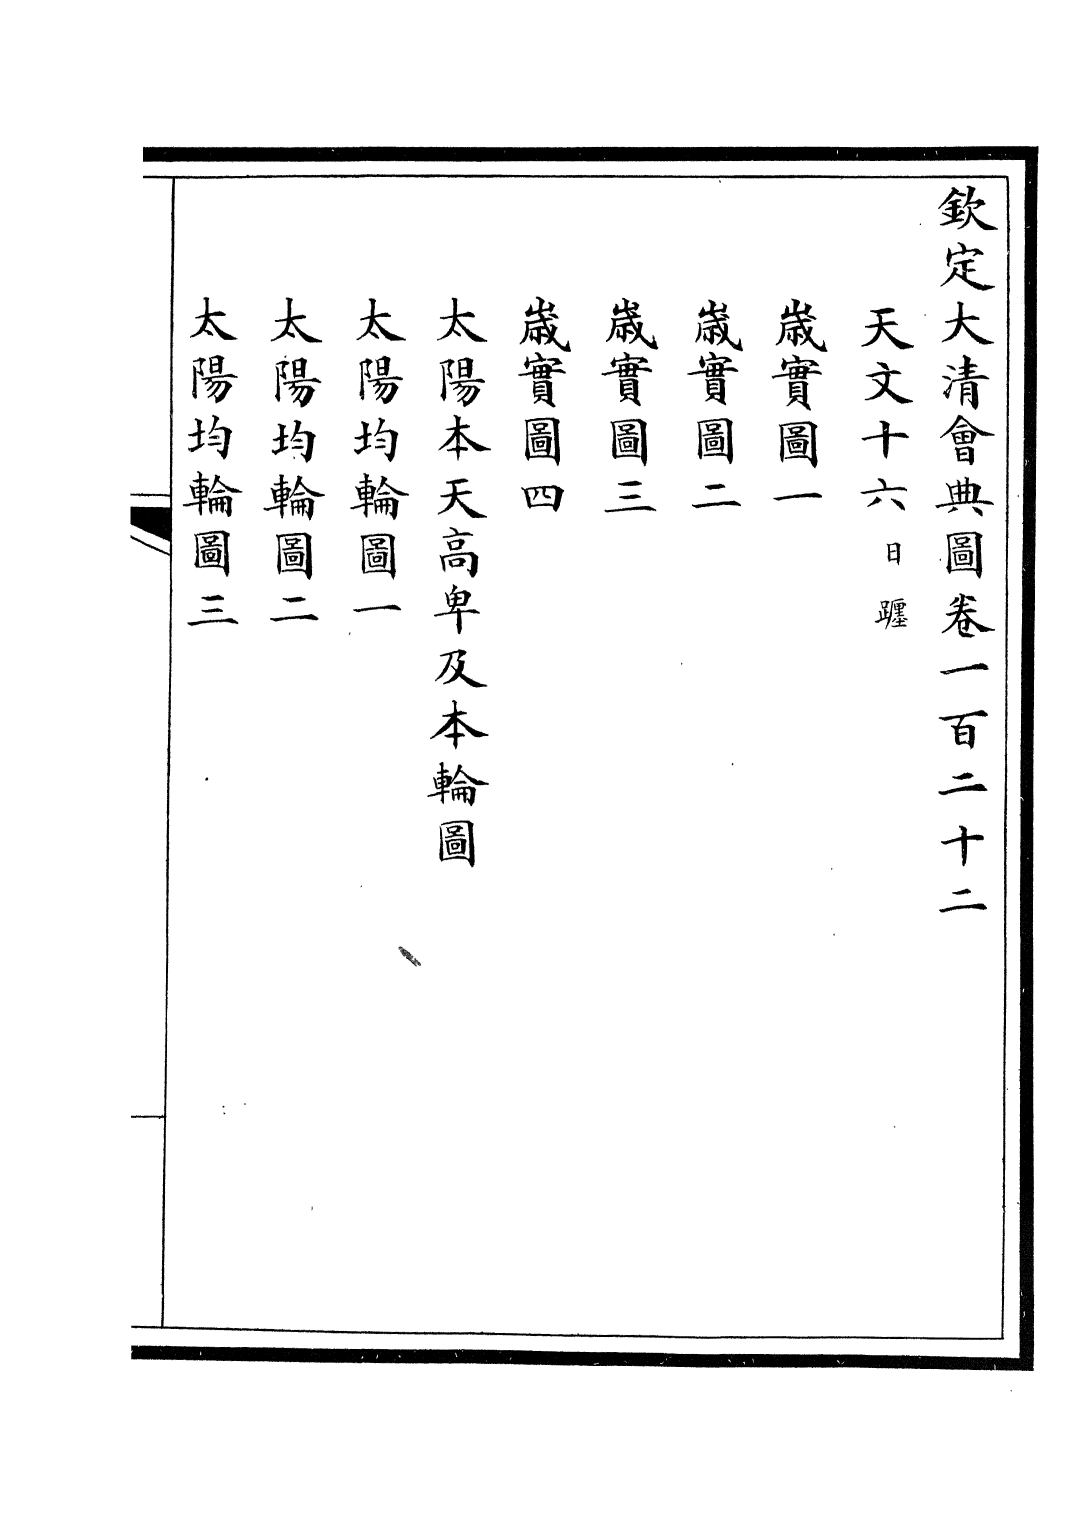 欽定大清會典圖卷一百二十二
天文十六日躔
歲實圖一
歲實圖二
歲實圖三
歲實圖四
太陽本天高卑及本輪圖
太陽均輪圖一
太陽均輪圖二
太陽均輪圖三